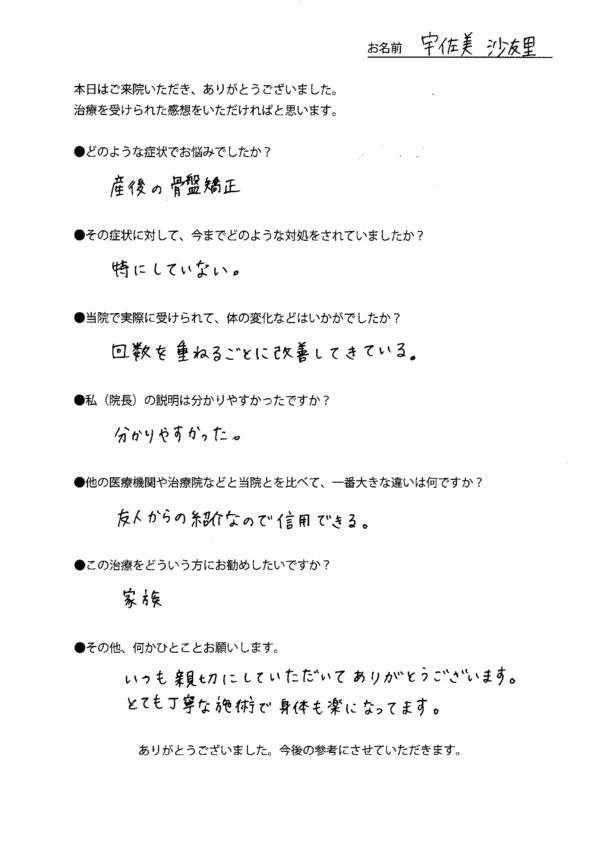 お名前 宇佐美 沙友里
本日はご来院いただき、ありがとうございました。
治療を受けられた感想をいただければと思います。
●どのような症状でお悩みでしたか？
産後の骨盤矯正
●その症状に対して、今までどのような対処をされていましたか？
特にしていない。
●当院で実際に受けられて、体の変化などはいかがでしたか？
回数を重ねるごとに改善してきている。
●私（院長）の説明は分かりやすかったですか？
分かりやすかった。
●他の医療機関や治療院などと当院とを比べて、一番大きな違いは何ですか？
友人からの紹介なので信用できる。
●この治療をどういう方にお勧めしたいですか？
家族
●その他、何かひとことお願いします。
いつも親切にしていただいてありがとうございます。
とても丁寧な施術で身体も楽になってます。
ありがとうございました。今後の参考にさせていただきます。